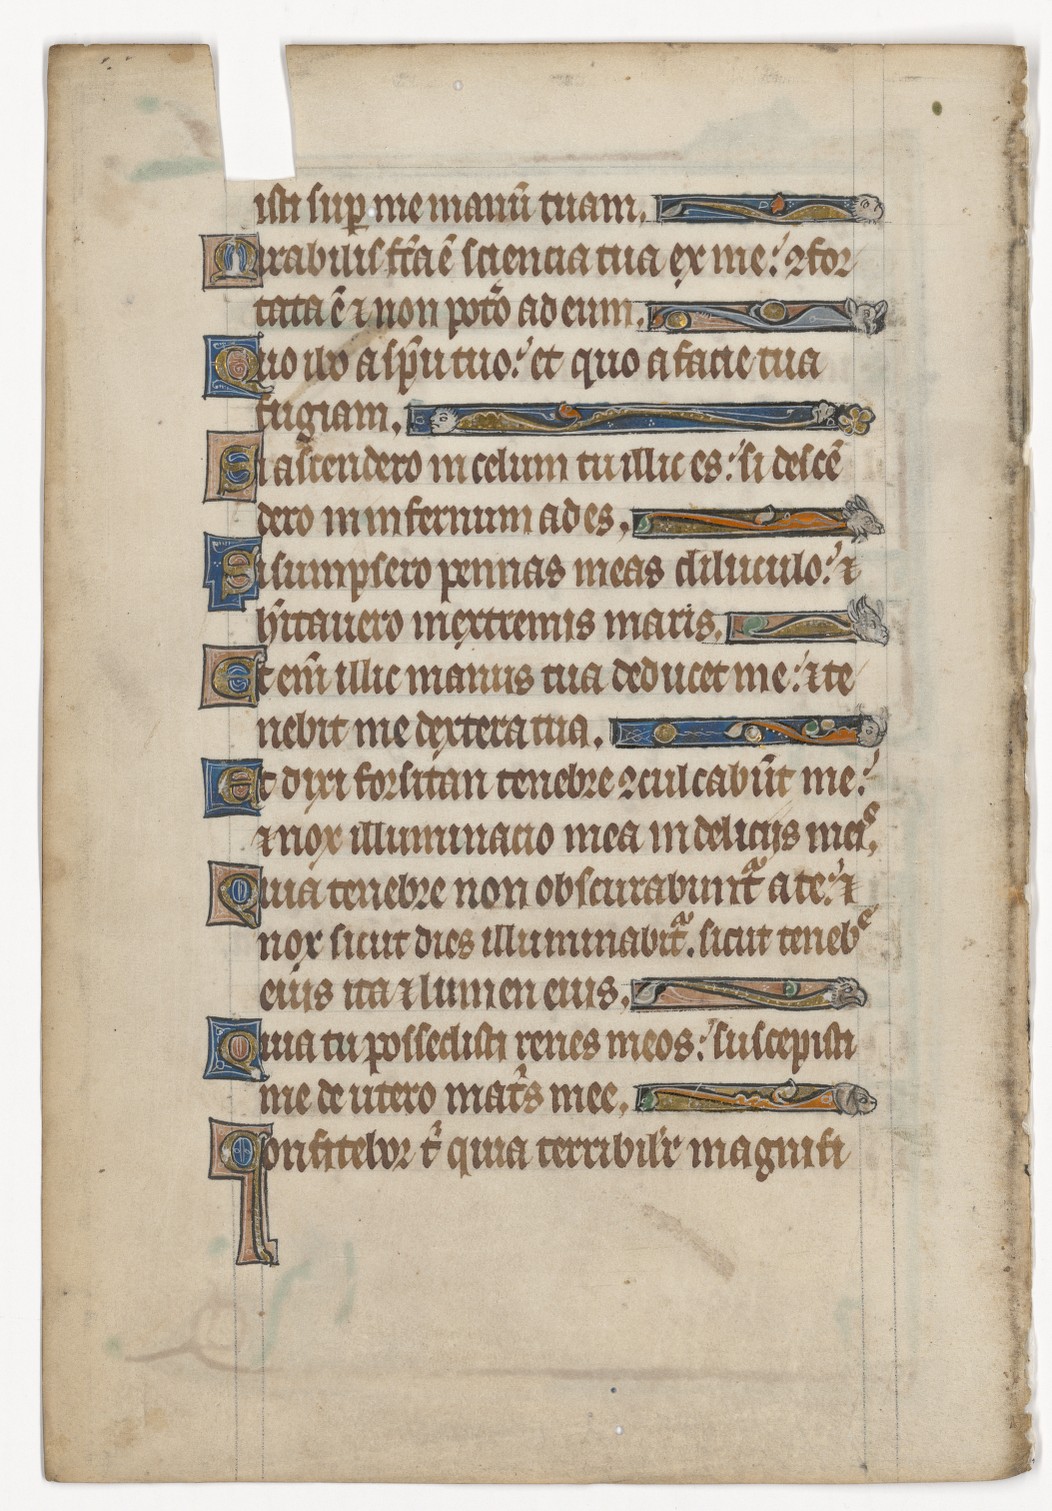 isti sup me manū tuam.
Mirabilis fc̄a ē sciencia tua ex me: ⁊ for
tata ē ⁊ non pot̄o ad eum.
Quo ibo a sp̄u tuo: et quo a facie tua
fugiam.
Si ascendero in celum tu illic es: si descē
dero in infernum ades.
Si sumpsero pennas meas diluculo: ⁊
hītauero in extremis maris.
Et eni᷑ illic manus tua deducet me: ⁊ te
nebit me dextera tua.
Et dixi forsitan tenebre ꝯculcabūt me:
⁊ nox illuminacio mea in delicijs meis.
Quia tenebre non obscurabuntᵃ a te: ⁊
nox sicut dies illuminabitᵃ. sicut tenebᵉ
eius ita ⁊ lumen eius.
Quia tu possedisti renes meos: suscepisti
me de utero mat̄s mee.
Confitebor tⁱ quia terribilir magnifi